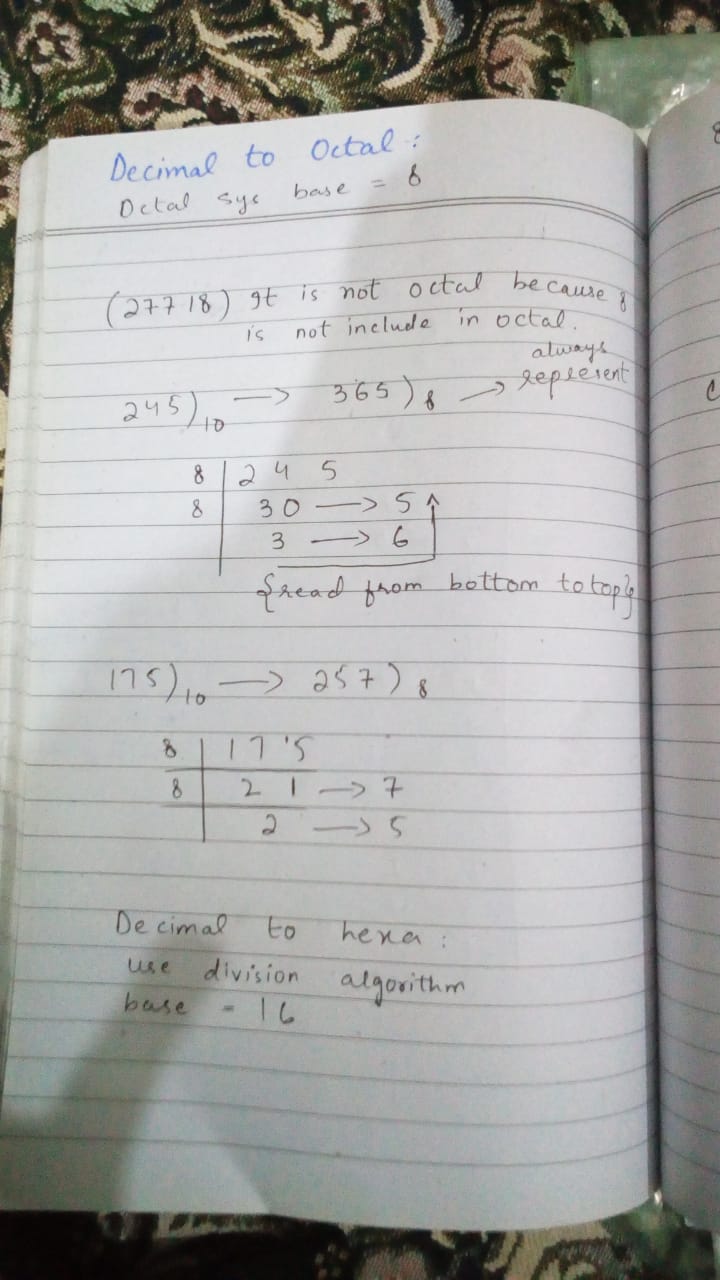 Decimal to Octal :
Octal sys base = 8
(27718) It is not octal because 8
is not include in octal.
always
245)10 → 365)8 → represent
8 | 2 4 5
8 | 30 → 5
3 → 6
{read from bottom to top}
175)10 → 257)8
8 | 175
8 | 21 → 7
2 → 5
Decimal to hexa :
use division algorithm
base = 16